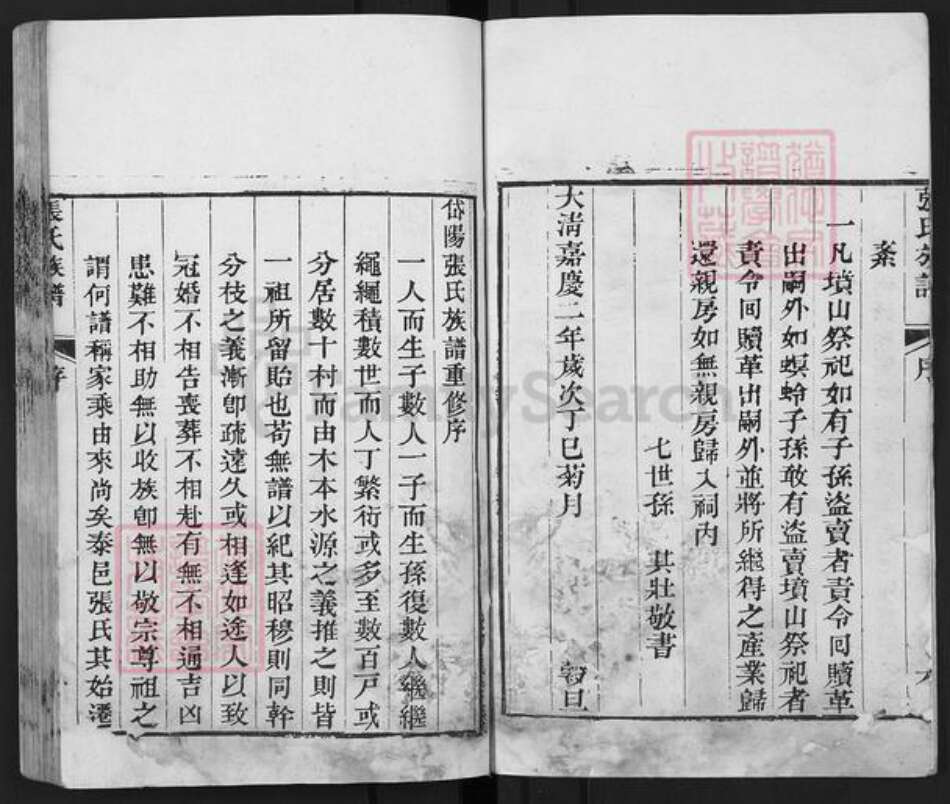 張氏族譜 序 六
紊
一凡墳山祭祀如有子孫盜賣者責令囘贖革
出嗣外如螟蛉子孫敢有盜賣墳山祭祀者
責令囘贖革出嗣外並將所繼得之產業歸
還親房如無親房歸入祠內
七世孫 其壯敬書
大淸嘉慶二年歲次丁巳菊月 旦
岱陽張氏族譜重修序
一人而生子數人一子而生孫復數人繼繼
繩繩積數世而人丁繁衍或多至數百戸或
分居數十村而由木本水源之義推之則皆
一祖所留貽也苟無譜以紀其昭穆則同幹
分枝之義漸卽疏遠久或相逢如途人以致
冠婚不相告喪葬不相赴有無不相通吉凶
患難不相助無以收族卽無以敬宗尊祖之
謂何譜稱家乘由來尚矣泰邑張氏其始遷
張氏族譜 序
FamilySearch